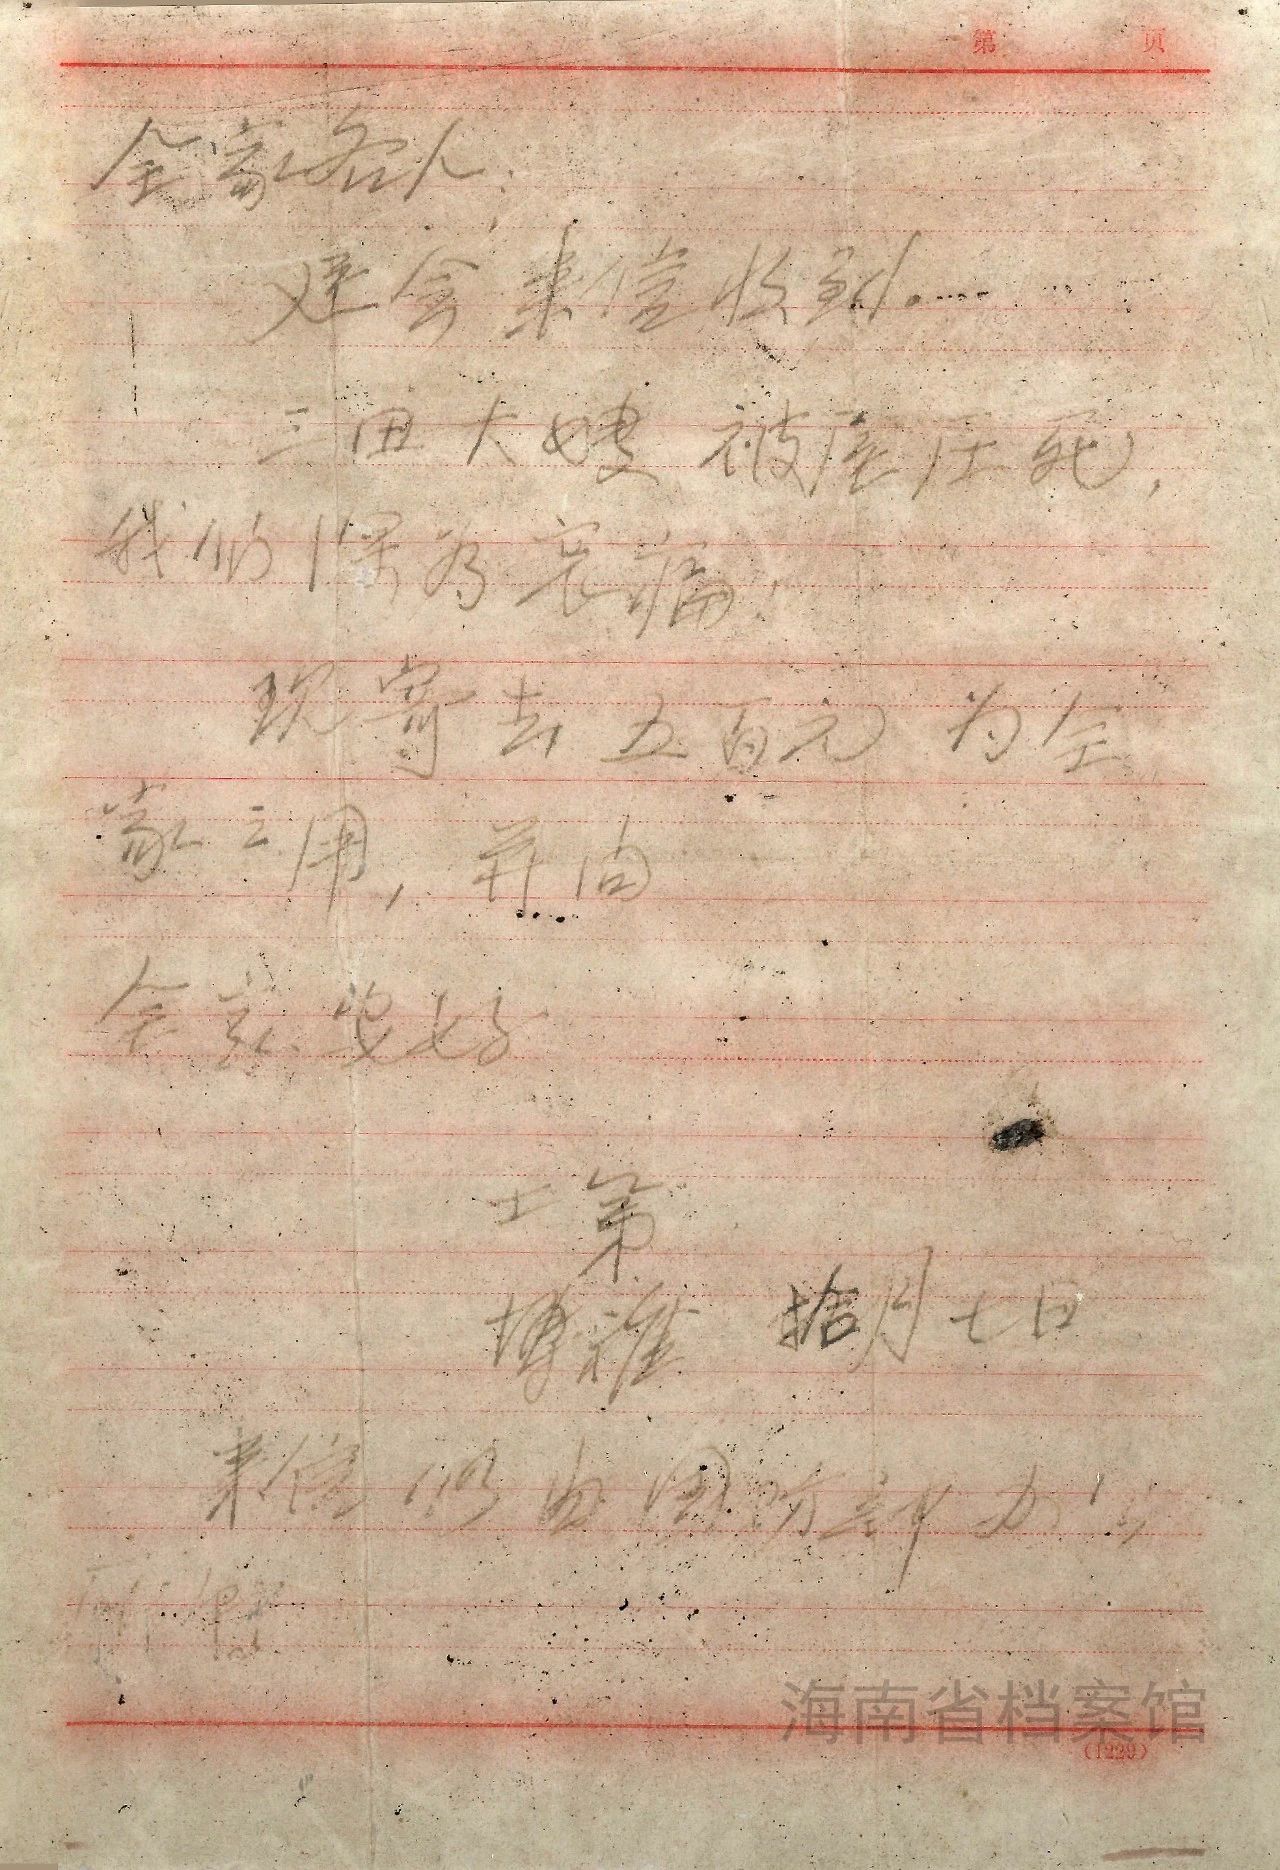 第 页
全家各人:
建会来信收到.
三田大嫂被屋压死,
我们深为哀痛.
现寄去五百元为全
家之用, 并问
全家安好
士第
博雅 拾月七日
来信仍由国防部办公
厅
海南省档案馆
(1229)